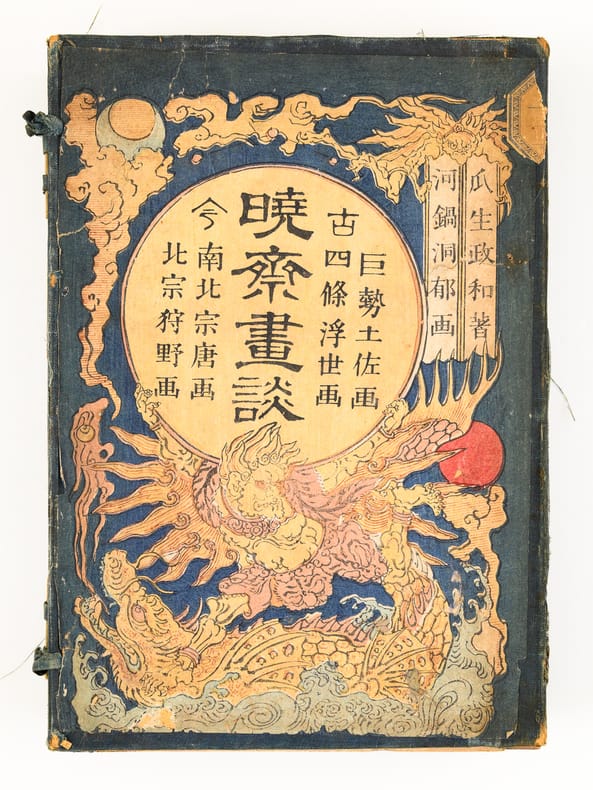 瓜生政和著
河鍋洞郁画
巨勢土佐画
古四條浮世画
曉斎畫談
今南北宗唐画
北宗狩野画